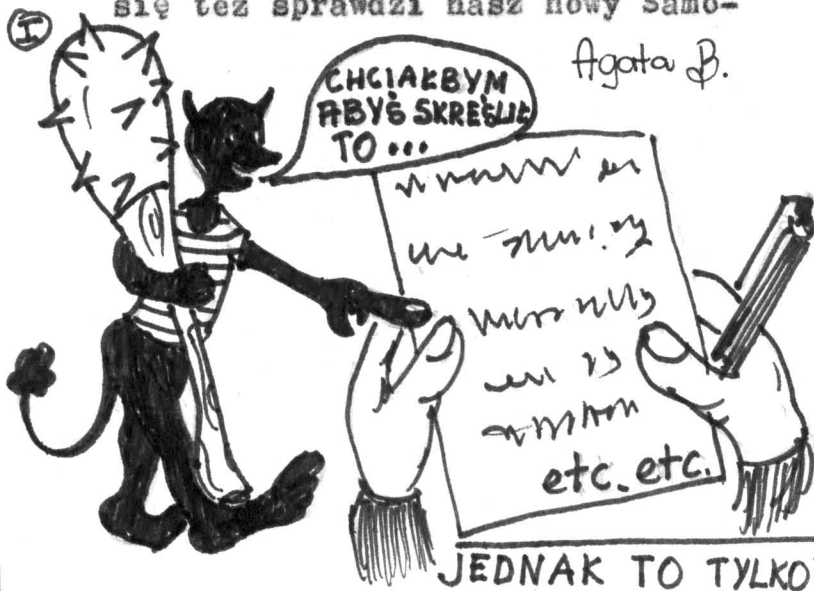 się też sprawdzi nasz nowy Samo-
I
Agata B.
CHCIAŁBYM
ABYŚ SKREŚLIŁ
TO ...
etc. etc.
JEDNAK TO TYLKO